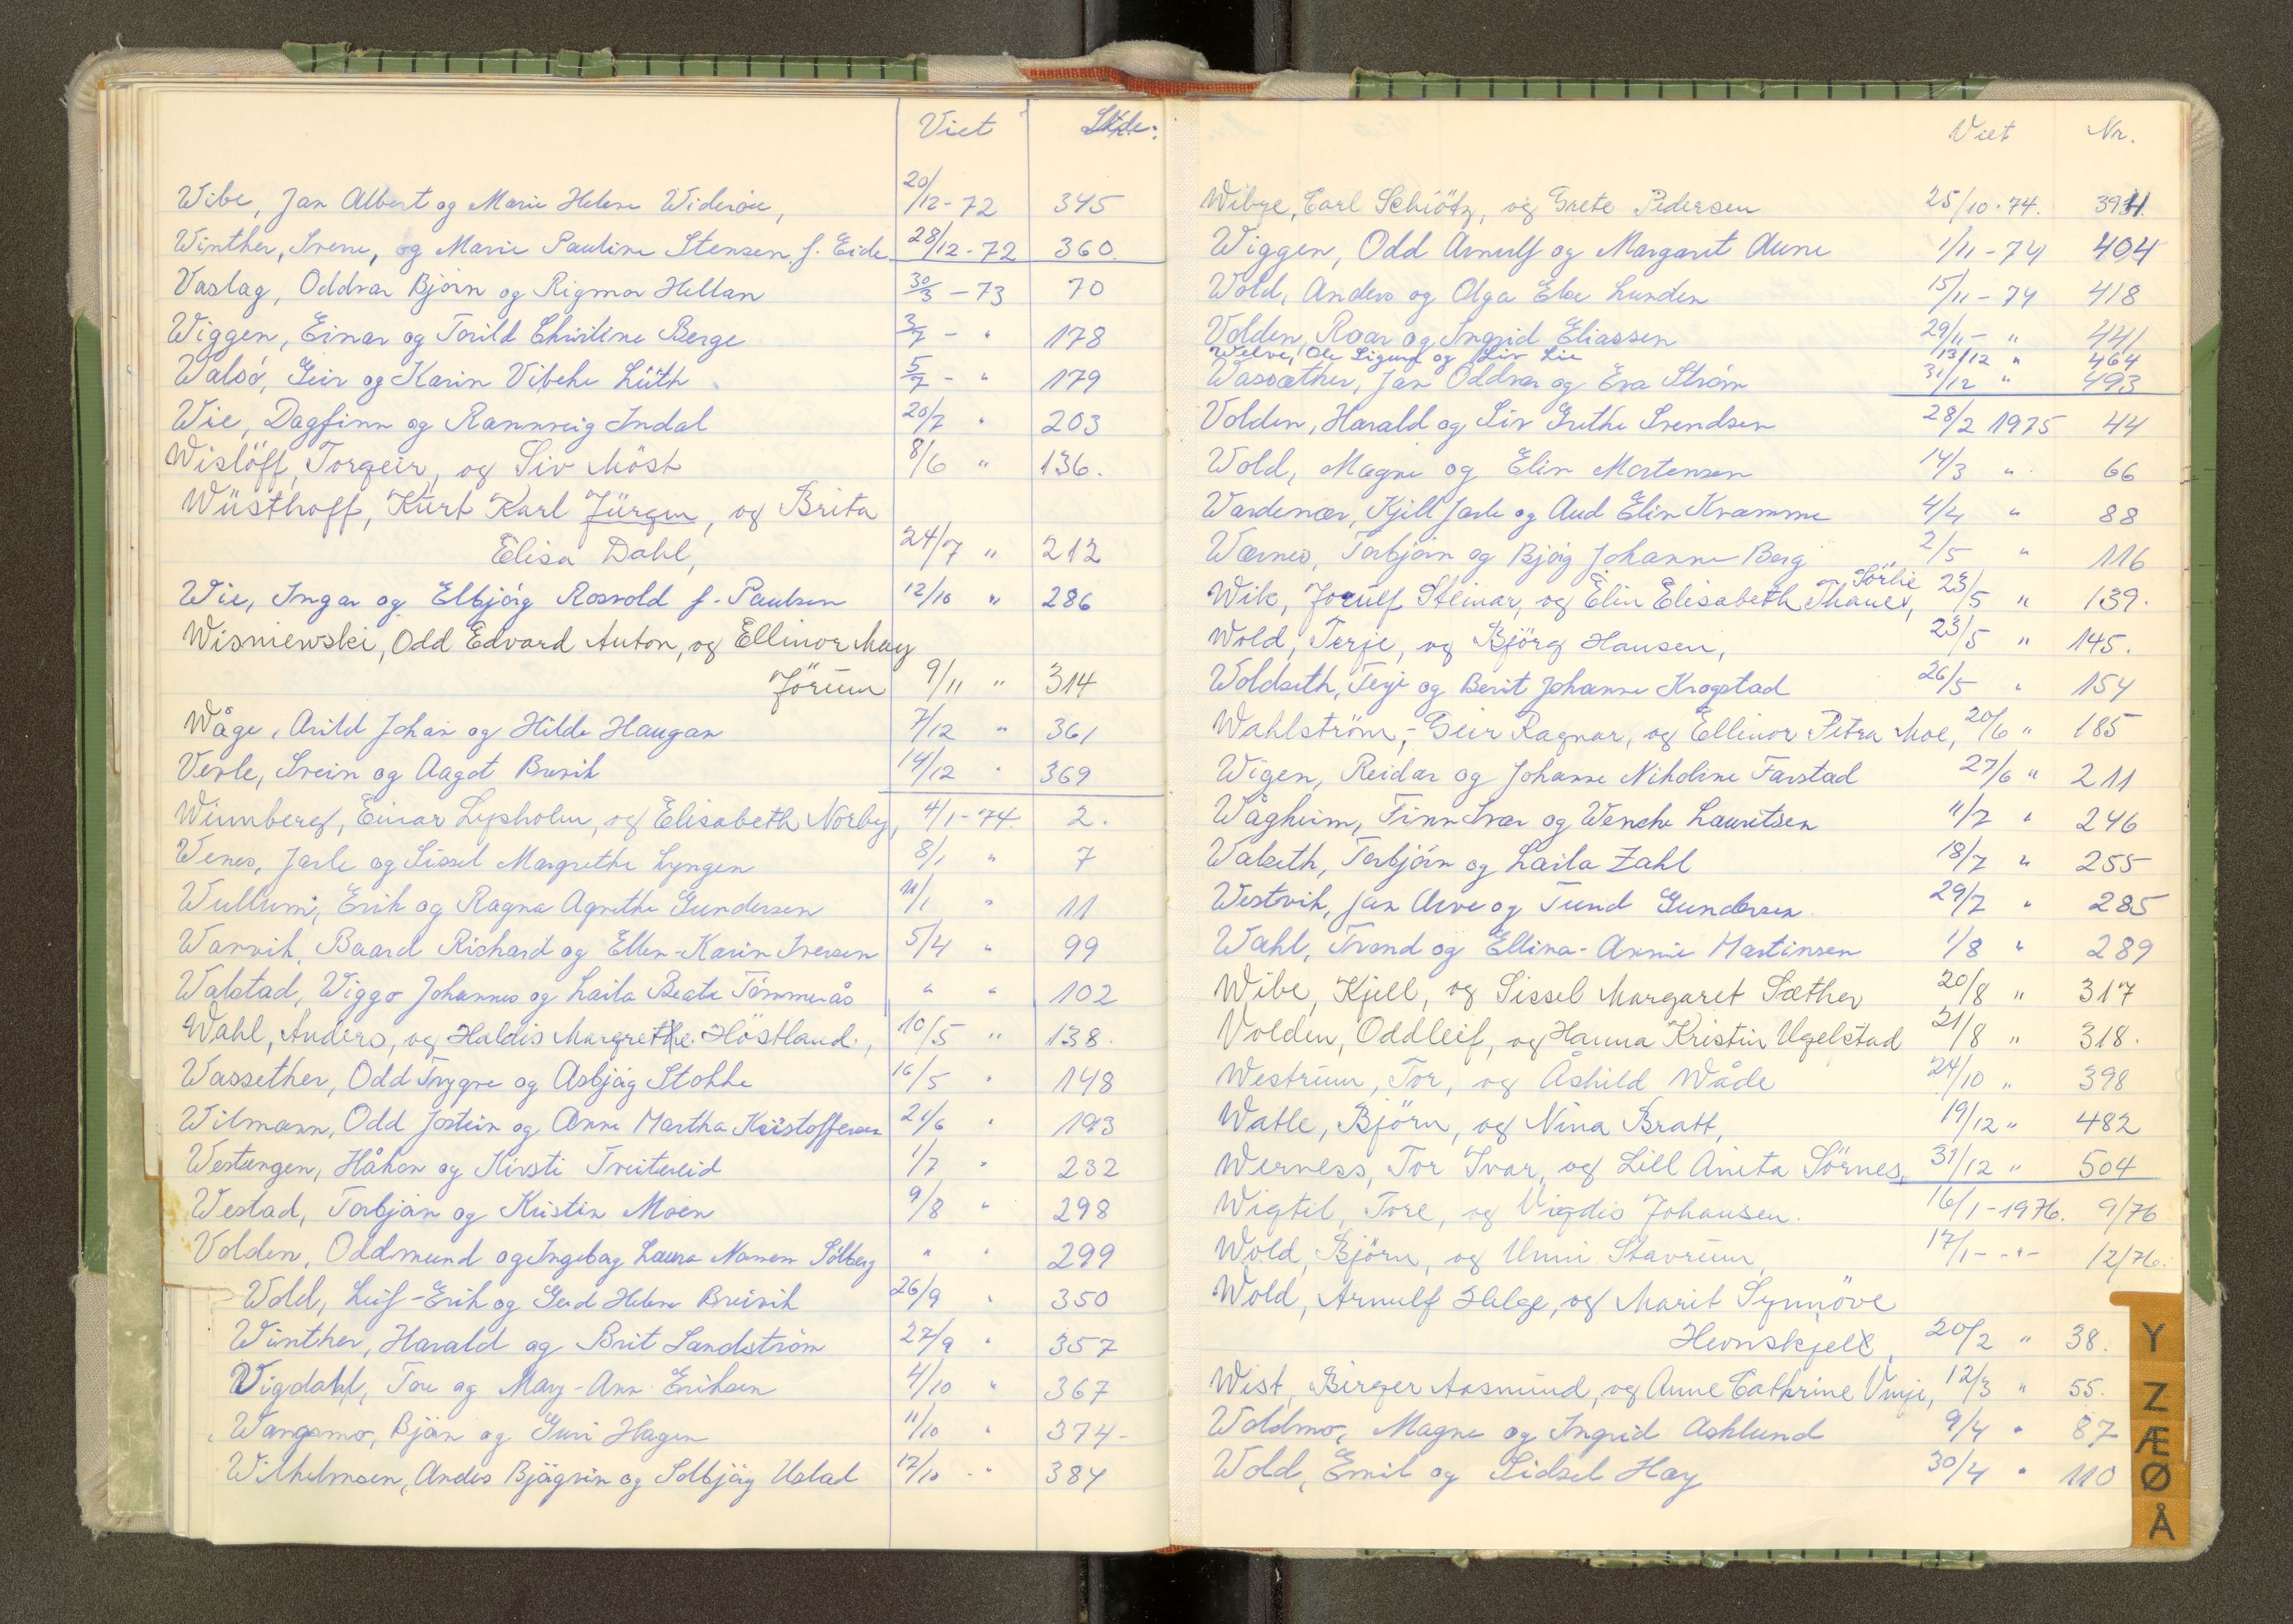 Viet
Wibe, Jan Albert og Marie Helene Widerøe, 20/12-72 345
Winther, Svenn, og Marie Pauline Stensen f. Eide 28/12-72 360.
Vaslag, Oddvar Bjørn og Rigmor Hellan 30/3-73 70
Wiggen, Einar og Torild Christine Berge 3/7 - " 178
Walsö, Geir og Karin Vibeke Lüth 5/7 - " 179
Wie, Dagfinn og Rannveig Indal 20/7 " 203
Wislöff, Torgeir, og Siv Möst 8/6 " 136.
Wüsthoff, Kurt Karl Jürgen, og Brita
Elisa Dahl, 24/7 " 212
Wie, Ingar og Elbjørg Rosvold f. Paulsen 12/10 " 286
Wisniewski, Odd Edvard Anton, og Ellinor May
Jörum 9/11 " 314
Wåge, Arild Johan og Hilde Haugan 7/12 " 361
Verle, Svein og Aagot Brevik 14/12 " 369
Winnberg, Einar Lysholm, og Elisabeth Norby, 4/1-74. 2.
Wenes, Jarle og Sissel Margrethe Lyngen 8/1 " 7
Wullum, Erik og Ragna Agnethe Gundersen 11/1 " 11
Warvik, Baard Richard og Ellen-Karin Iversen 5/4 " 99
Walstad, Viggo Johannes og Laila Beate Tömmerås " " 102
Wahl, Anders, og Haldis Margrethe Höstland, 10/5 " 138.
Wassether, Odd Trygve og Asbjørg Stokke 16/5 " 148
Wilmann, Odd Jostein og Anne Martha Kristoffersen 21/6 " 193
Westengen, Håkon og Kirsti Treitereid 1/7 " 232
Westad, Torbjørn og Kristin Moen 9/8 " 298
Volden, Oddmund og Ingeborg Laura Solberg " " 299
Wold, Leif-Erik og Gerd Helene Breivik 26/9 " 350
Winther, Harald og Brit Sandström 27/9 " 357
Vigdahl, Tore og May-Ann Eriksen 4/10 " 367
Wangsmo, Bjørn og Guri Hagen 11/10 " 374-
Wilhelmsen, Anders Bjørgvin og Solbjørg Ustad 17/10 - " 384
Viet Nr.
Wibye, Carl Schiötz, og Grete Pedersen 25/10.74. 394.
Wiggen, Odd Arnulf og Margarit Aune 1/11-74 404
Wold, Anders og Olga Else Lunden 15/11-74 418
Volden, Roar og Ingrid Eliassen 29/11 - " 441
Welve, Ole Sigurd og Liv Lie 13/12 " 464
Wassæther, Jan Oddvar og Eva Strøm 31/12 " 493
Volden, Harald og Liv Grethe Svendsen 28/2 1975 44
Wold, Magne og Elin Mortensen 14/3 " 66
Wardenær, Kjell Jarle og Aud Elin Kvamme 4/4 " 88
Wærnes, Torbjørn og Bjørg Johanne Berg 2/5 " 116
Sörlie
Wik, Jorulf Steinar, og Elin Elisabeth Thanes, 23/5 " 139.
Wold, Terje, og Björg Hansen, 23/5 " 145.
Woldseth, Terje og Berit Johanne Krogstad 26/5 " 154
Wahlström, Geir Ragnar, og Ellinor Petra Moe, 20/6 " 185
Wigen, Reidar og Johanne Nikoline Farstad 27/6 " 211
Wågheim, Finn Ivar og Wenche Lauritsen 11/7 " 246
Walseth, Torbjørn og Laila Zahl 18/7 " 255
Westvik, Jan Arve og Turid Gundersen 29/7 " 285
Wahl, Trond og Ellina-Annie Martinsen 1/8 " 289
Wibe, Kjell, og Sissel Margaret Sæther 20/8 " 317
Volden, Oddleif, og Hanna Kristin Ugelstad 21/8 " 318.
Westrum, Tor, og Åshild Wåde 24/10 " 398
Watle, Björn, og Nina Bratt, 19/12 " 482
Werness, Tor Ivar, og Lill Anita Sörnes, 31/12 " 504
Wigtil, Tore, og Vigdis Johansen. 16/1-1976. 9/76
Wold, Björn, og Unni Stavrum, 17/1 - - " - 12/76.
Wold, Arnulf Helge, og Marit Synnöve
Hevnskjell, 20/2 " 38.
Wist, Birger Aasmund, og Anne Cathrine Vinje, 12/3 " 55.
Woldmo, Magne og Ingrid Asklund 9/4 " 87
Wold, Emil og Sidsel Hay 30/4 " 110
Y
Z
Æ
Ø
Å